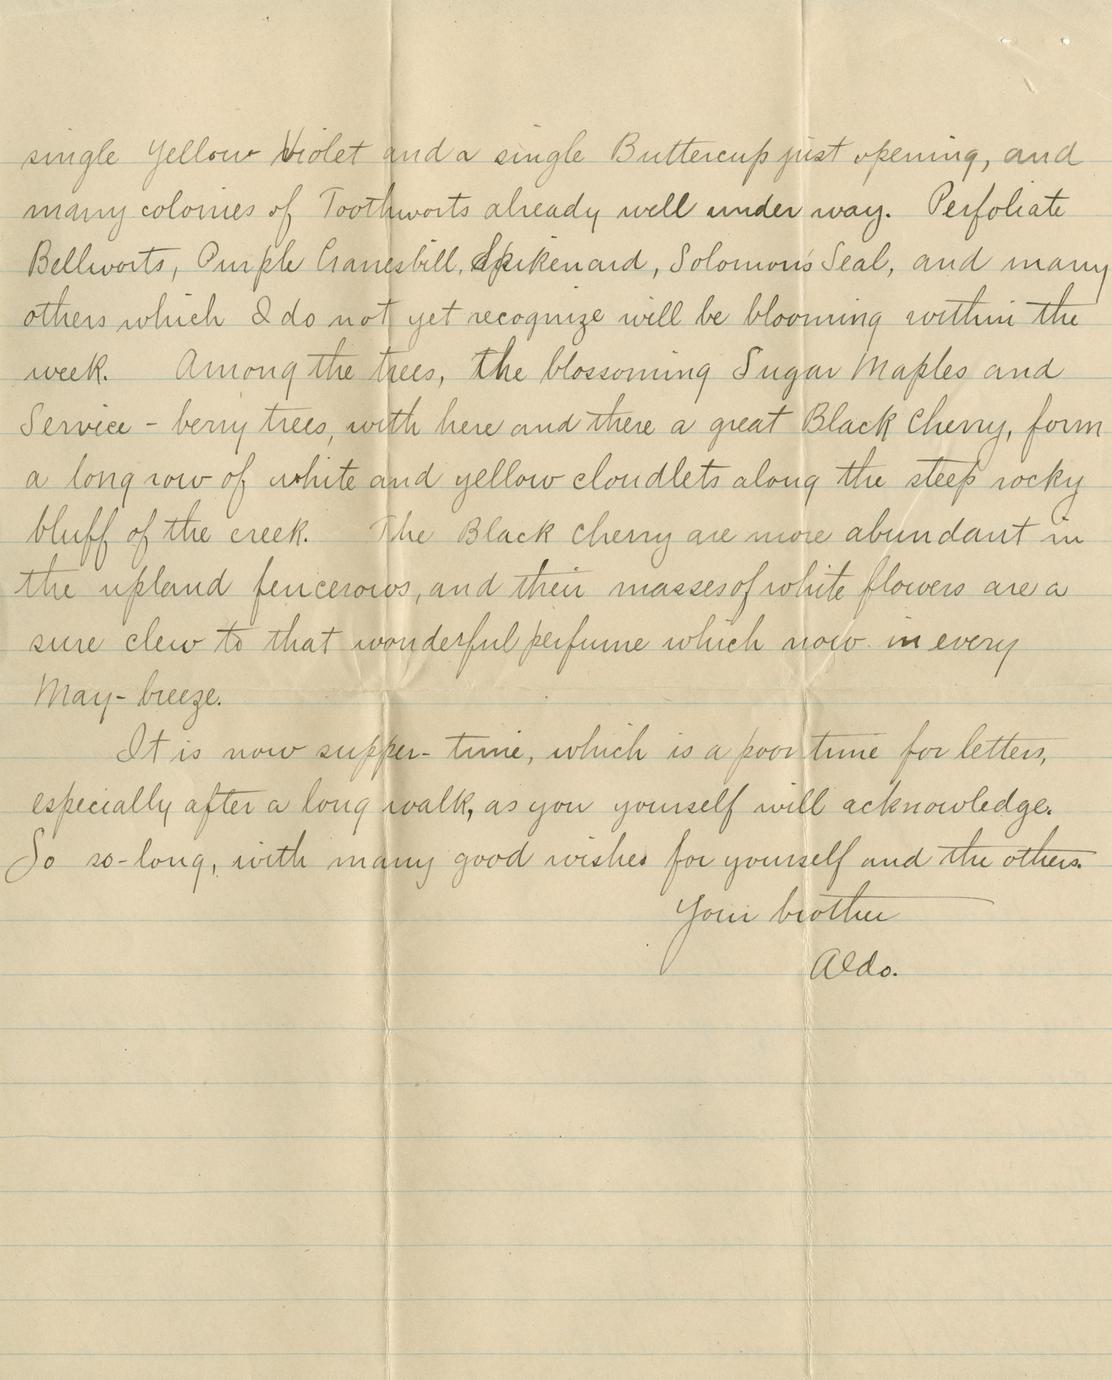 single Yellow Violet and a single Buttercup just opening, and
many colonies of Toothworts already well under way. Perfoliate
Bellworts, Purple Cranesbill, Spikenard, Solomon's Seal, and many
others which I do not yet recognize will be blooming within the
week. Among the trees, the blossoming Sugar Maples and
Service-berry trees, with here and there a great Black Cherry, form
a long row of white and yellow cloudlets along the steep rocky
bluff of the creek. The Black Cherry are more abundant in
the upland fencerows, and their masses of white flowers are a
sure clew to that wonderful perfume which now in every
May-breeze.
It is now supper-time, which is a poor time for letters,
especially after a long walk, as you yourself will acknowledge.
So so-long, with many good wishes for yourself and the others.
Your brother
Aldo.